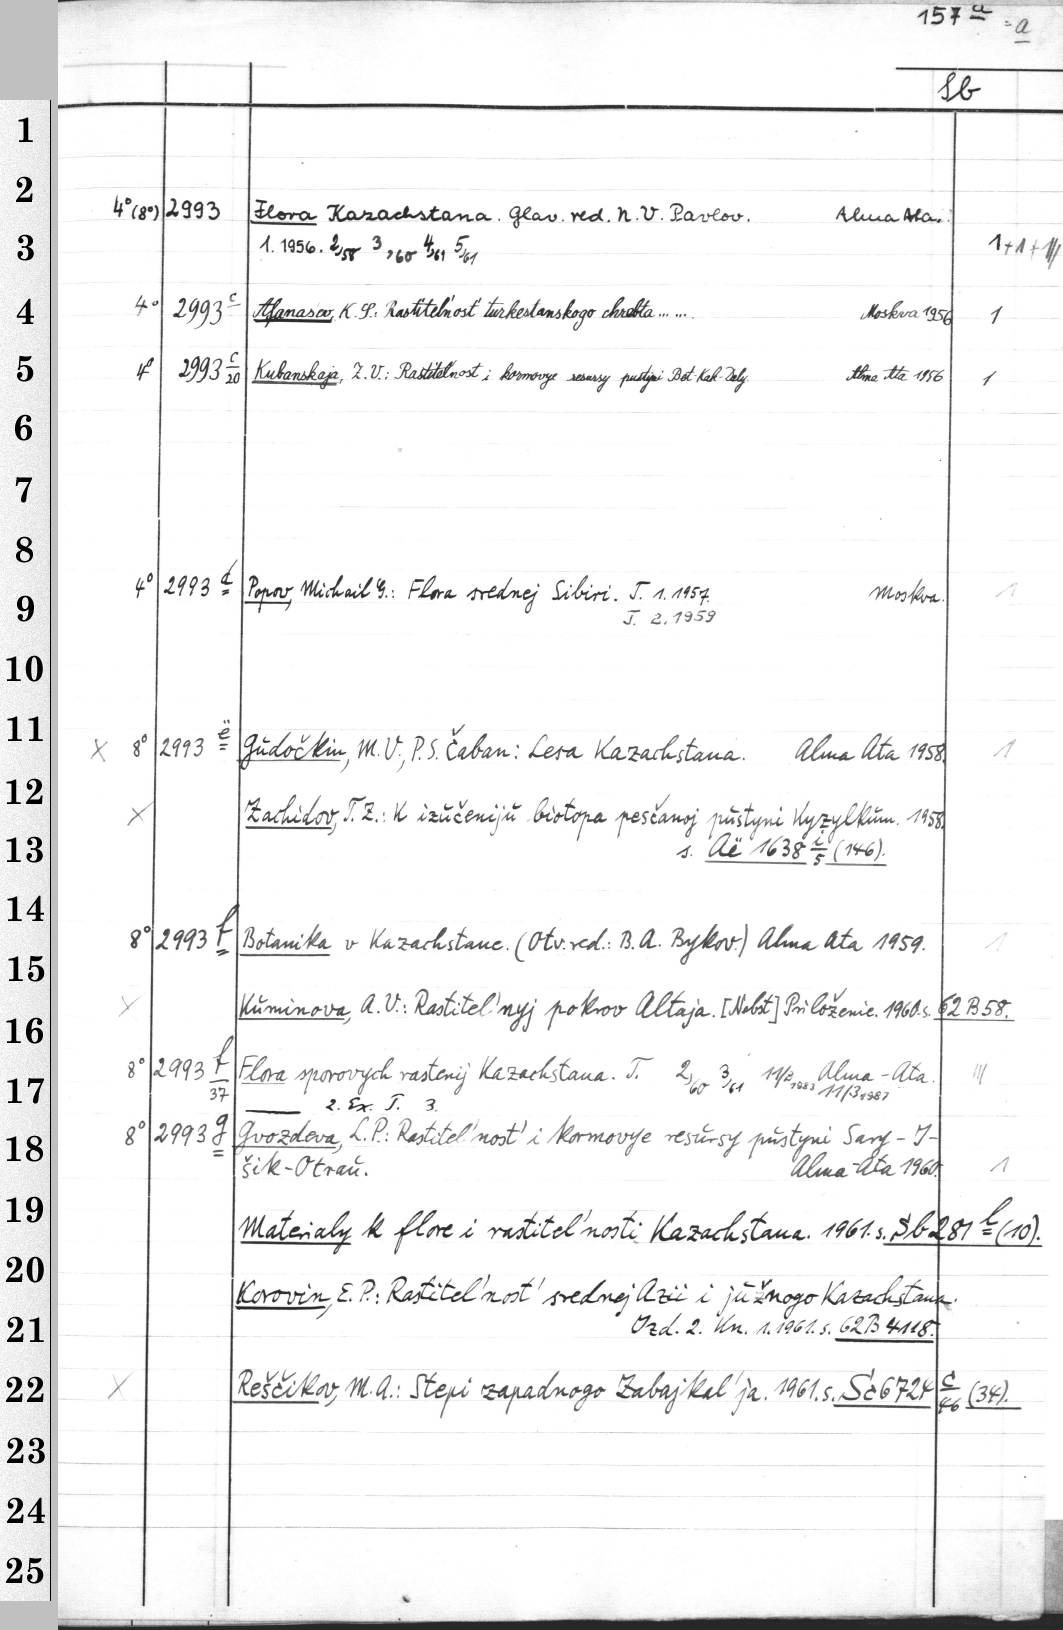 157 a = a
Sb
1
2
4° (8°) 2993 Flora Kazachstana. Glav. red. N. V. Pavlov. Alma Ata.
3 1. 1956. 2,58 3,60 4,61 5,61 1+1+III
4 4° 2993 c Afanas'ev, K. S.: Rastitel'nost' turkestanskogo chrebta ...... Moskva 1956 1
5 4° 2993 c/20 Kubanskaja, Z. V.: Rastitel'nost' i kormovye resursy pustyni Bet-Kak-Daly. Alma Ata 1956 1
6
7
8
9 4° 2993 d Popov, Michail G.: Flora srednej Sibiri. T. 1. 1957. Moskva. 1
T. 2. 1959
10
11 x 8° 2993 ë Gudočkin, M. V., P. S. Čaban: Lesa Kazachstana. Alma Ata 1958. 1
12 x Zachidov, T. Z.: K izučeniju biotopa pesčanoj pustyni Kyzylkum. 1958.
13 s. Aë 1638 i/5 (146).
14
8° 2993 f Botanika v Kazachstane. (Otv. red.: B. A. Bykov.) Alma Ata 1959. 1
15
16 x Kuminova, A. V.: Rastitel'nyj pokrov Altaja. [Nebst] Priloženie. 1960. s. 62 B 58.
17 8° 2993 f/37 Flora sporovych rastenij Kazachstana. T. 2,60 3,61 11/2 1983 Alma-Ata. III
11/3 1987
2. Ex. T. 3.
18 8° 2993 g Gvozdeva, L. P.: Rastitel'nost' i kormovye resursy pustyni Sary-I-
šik-Otrau. Alma-Ata 1960. 1
19 Materialy k flore i rastitel'nosti Kazachstana. 1961. s. Šb 281 h (10).
20 Korovin, E. P.: Rastitel'nost' srednej Azii i južnogo Kazachstana.
21 Izd. 2. Kn. 1. 1961. s. 62 B 4118.
22 x Reščikov, M. A.: Stepi zapadnogo Zabajkal'ja. 1961. s. Sč 6724 c/46 (34).
23
24
25